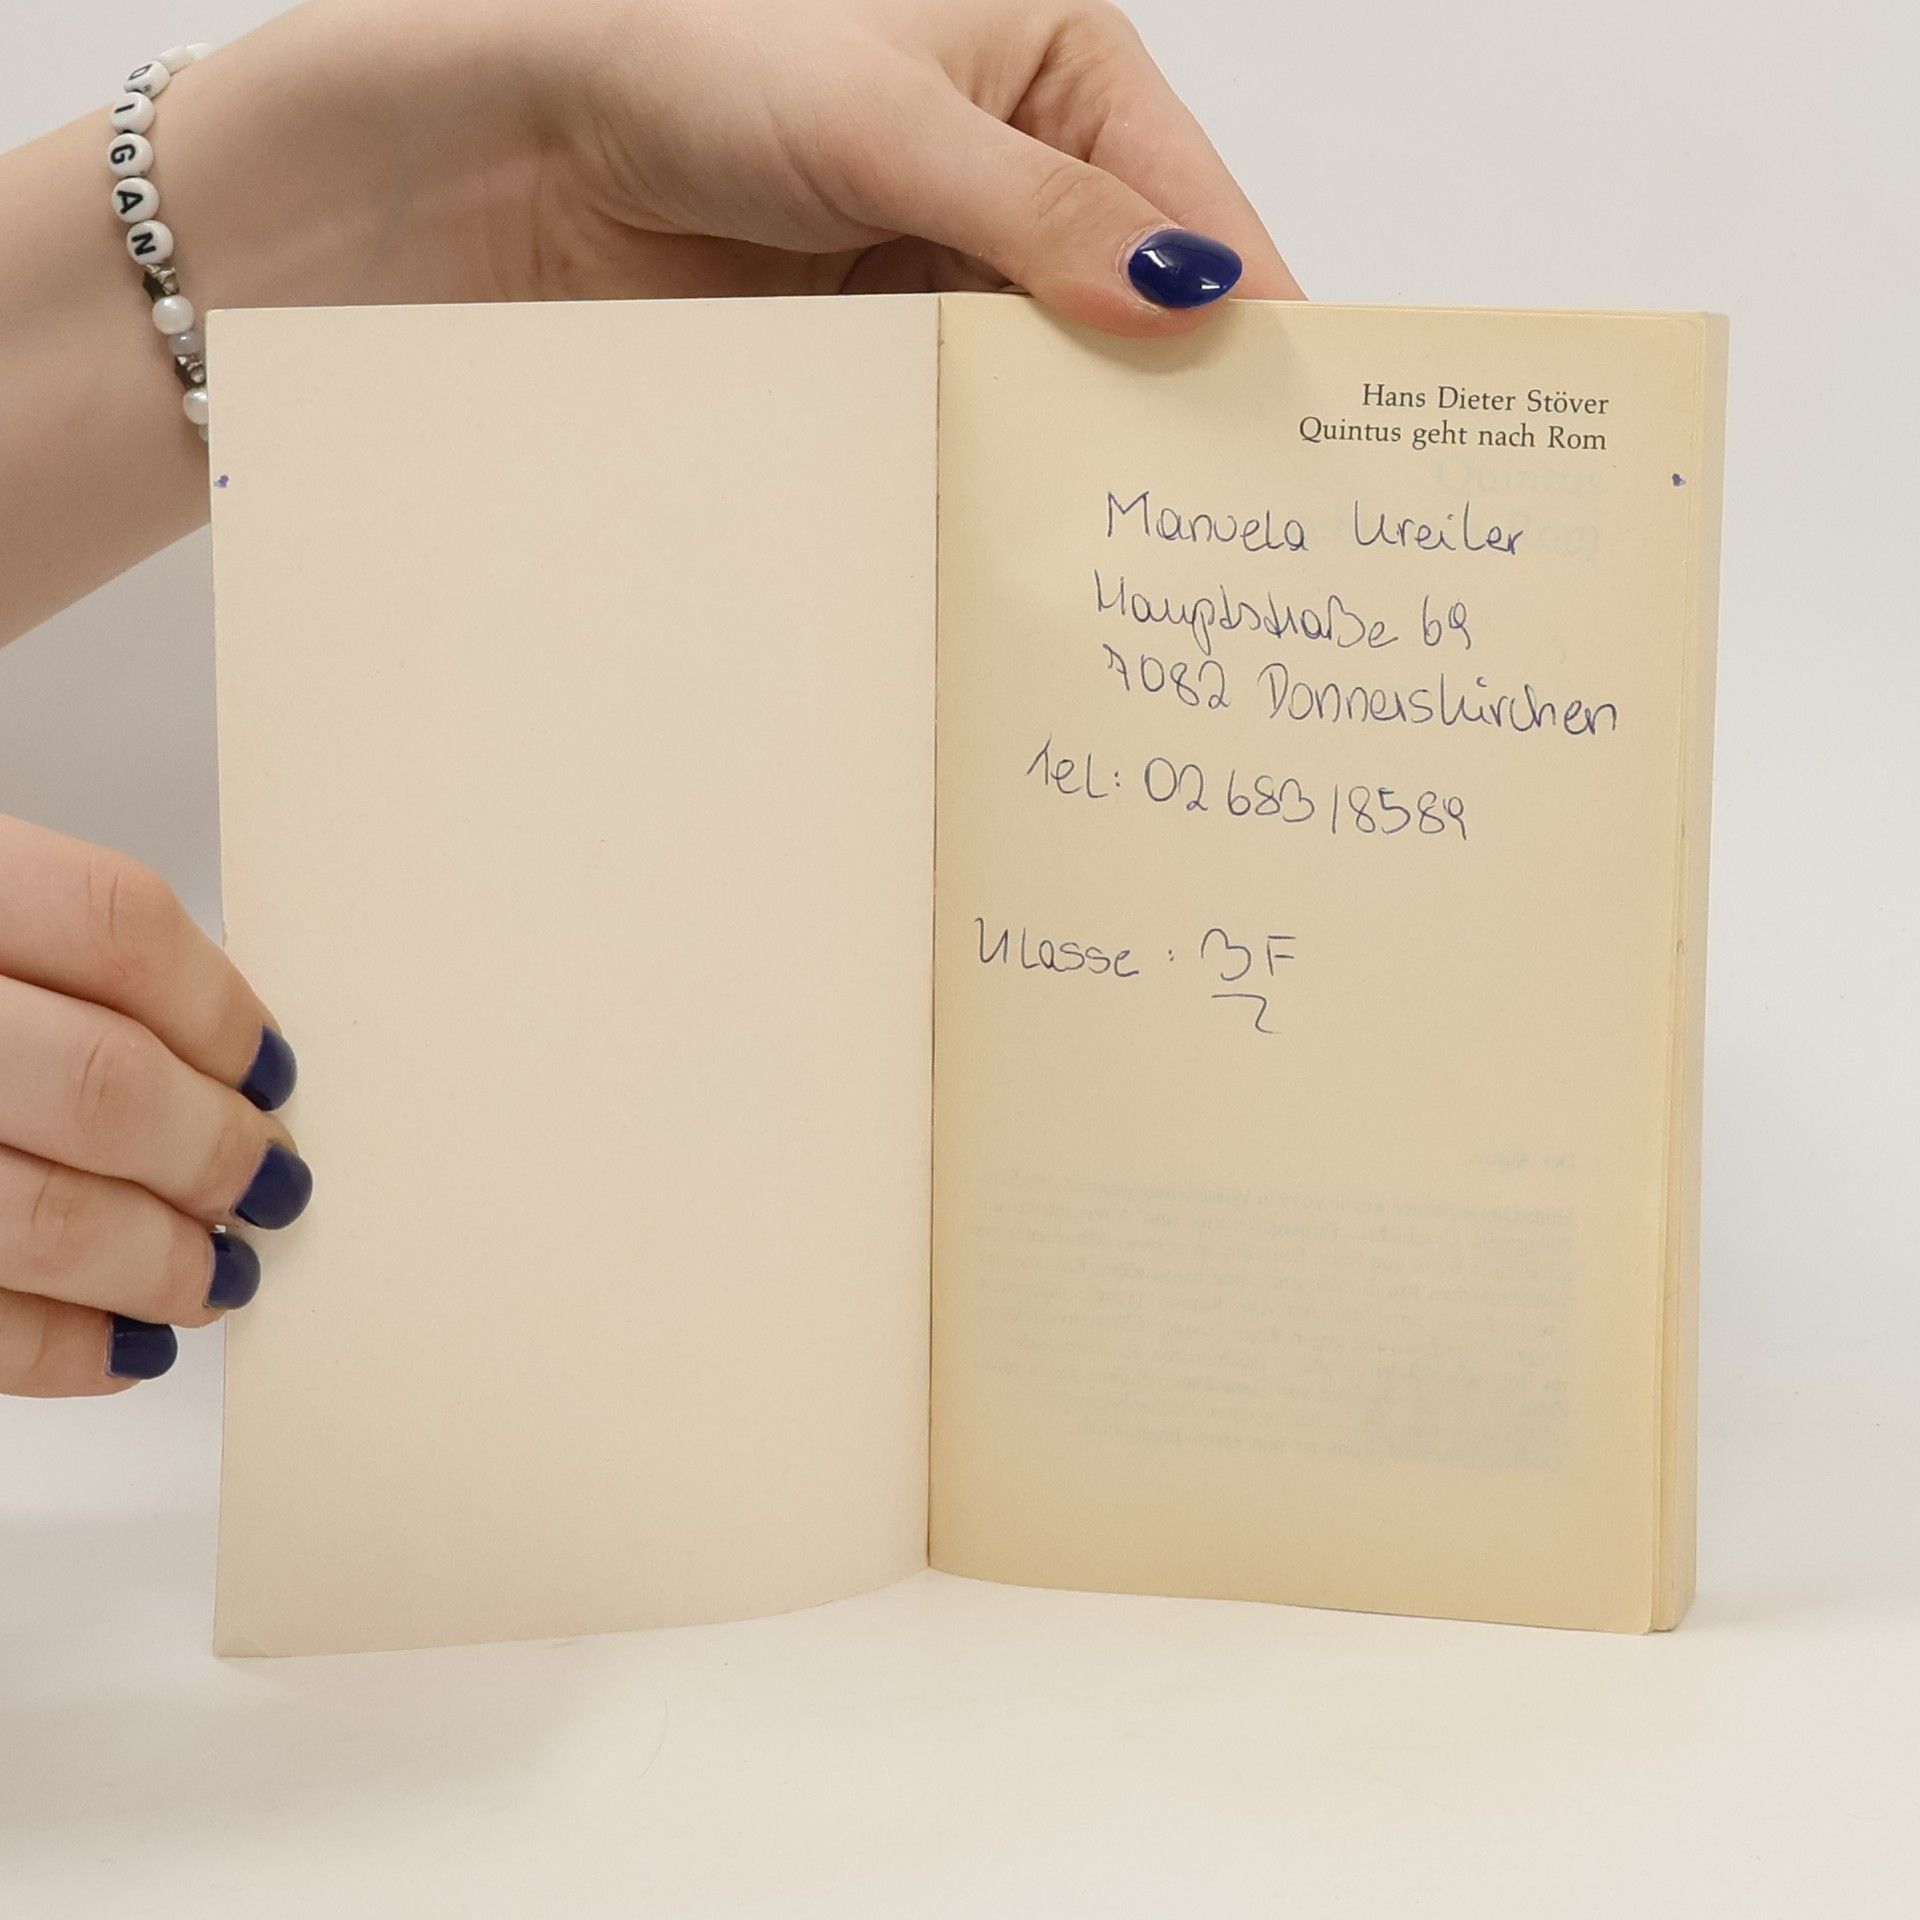 DIGAN
Hans Dieter Stöver
Quintus geht nach Rom
Manuela Kreiler
Hauptstraße 69
7082 Donnerskirchen
Tel: 02683/8589
Klasse: 3F